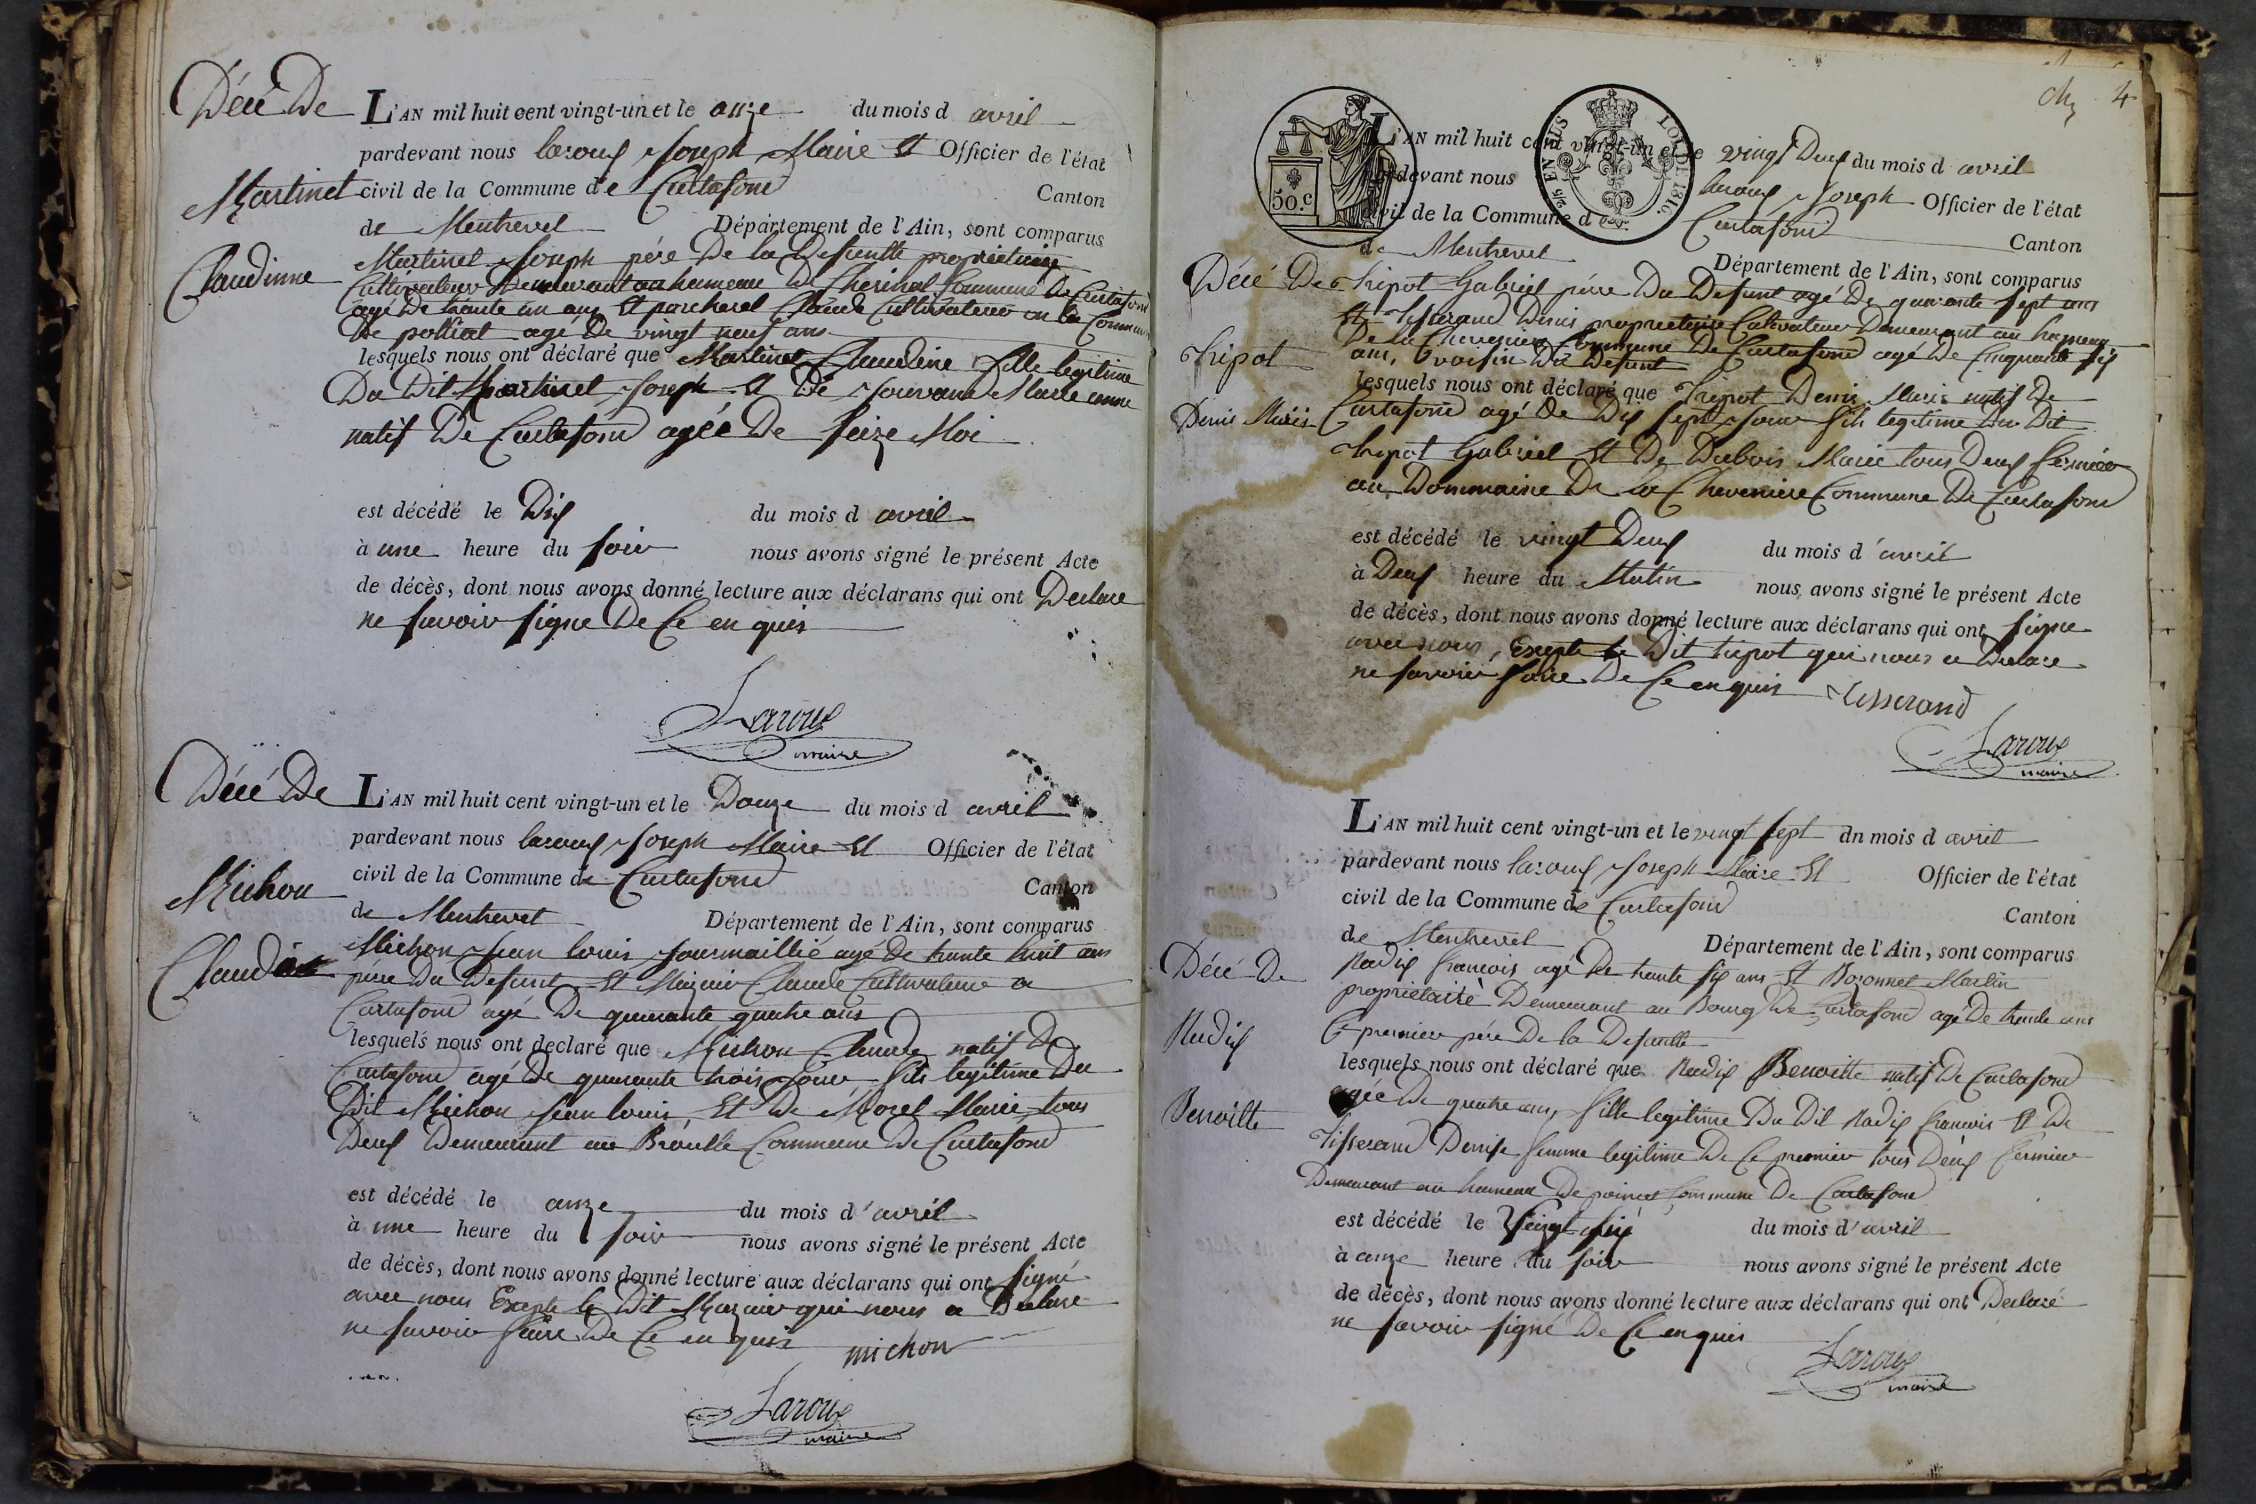 Décé De
Martinet
Claudinne
L'AN mil huit cent vingt-un et le onze du mois d avril
pardevant nous laroux Joseph Maire Et Officier de l'état
civil de la Commune de Curtafond Canton
de Montrevel Département de l'Ain, sont comparus
Martinet Joseph pére De la Defuntte propriétaire
Cultivateur Demeurant au hameau De Cherinal Commune De Curtafond
agé De trante un ans Et porcherel Claude Cultivateur en la Commune
De polliat agé De vingt neuf ans
lesquels nous ont déclaré que Martinet Claudine fille legitime
Du Dit Martinet Joseph Et De Marie anne
natif De Curtafond agée De seize Moi
est décédé le Dix du mois d avril
à une heure du soir nous avons signé le présent Acte
de décès, dont nous avons donné lecture aux déclarans qui ont Declare
ne savoir signe De Ce en quis
Laroux
maire
Décé De
Michon
Claude
L'AN mil huit cent vingt-un et le Douze du mois d avril
pardevant nous laroux Joseph Maire Et Officier de l'état
civil de la Commune de Curtafond Canton
de Montrevel Département de l'Ain, sont comparus
Michon Jean louis Journaillié agé de trante huit ans
pere Du Defunt Et Mazuir Claude Cultivateur a
Curtafond agé De quarante quatre ans
lesquels nous ont declaré que Michon Claude natif De
Curtafond agé De quarante trois Jour fils legitime Du
Dit Michon Jean louis Et De Morel Marie tous
Deux Demeurant au Commune De Curtafond
est décédé le onze du mois d' avril
à une heure du soir nous avons signé le présent Acte
de décès, dont nous avons donné lecture aux déclarans qui ont signé
avec nous Excepte le Dit Mazuir qui nous a Declare
ne savoir faire De Ce en quis michon
Laroux
maire
4
50.c
LOI DE 1816
Décé De
Tripot
Denis Marie
L'AN mil huit cent vingt-un et le vingt Deux du mois d avril
pardevant nous laroux Joseph Officier de l'état
civil de la Commune d Curtafond Canton
de Montrevel Département de l'Ain, sont comparus
Tripot Gabriel pére Du Defunt agé De quarante sept ans
Et Tisserand Denis propriétaire Cultivateur Demeurant au hameau
De la Cheveniere Commune De Curtafond agé De Cinquante six
ans, voisin Du Defunt
lesquels nous ont déclaré que Tripot Denis Marie natif De
Curtafond agé De Dix sept Jour fils legitime Du Dit
Tripot Gabriel Et De Dubois Marie tous Deux fermier
au Dommaine De La Cheveniere Commune De Curtafond
est décédé le vingt Deux du mois d'avril
à Deux heure du Matin nous avons signé le présent Acte
de décès, dont nous avons donné lecture aux déclarans qui ont signe
avec nous, Excepte le Dit tripot qui nous a Declare
ne savoir faire De Ce en quis Tisserand
Laroux
maire
Décé De
Nadix
Benoitte
L'AN mil huit cent vingt-un et le vingt sept dn mois d avril
pardevant nous laroux Joseph Maire Et Officier de l'état
civil de la Commune de Curtafond Canton
de Montrevel Département de l'Ain, sont comparus
Nadix francois agé De trante six ans Et Martin
propriétaire Demeurant au Bourg De Curtafond agé De trente ans
Ce premier pére De la Defuntte
lesquels nous ont déclaré que Nadix Benoitte natif De Curtafond
agée De quatre ans, fille legitime Du Dit Nadix francois Et De
Tisserand Denise femme legitime De Ce premier tous Deux fermier
Demeurant au hameau De Commune De Curtafond
est décédé le Vingt six du mois d' avril
à onze heure du soir nous avons signé le présent Acte
de décès, dont nous avons donné lecture aux déclarans qui ont Declaré
ne savoir signé De Ce en quis
Laroux
maire